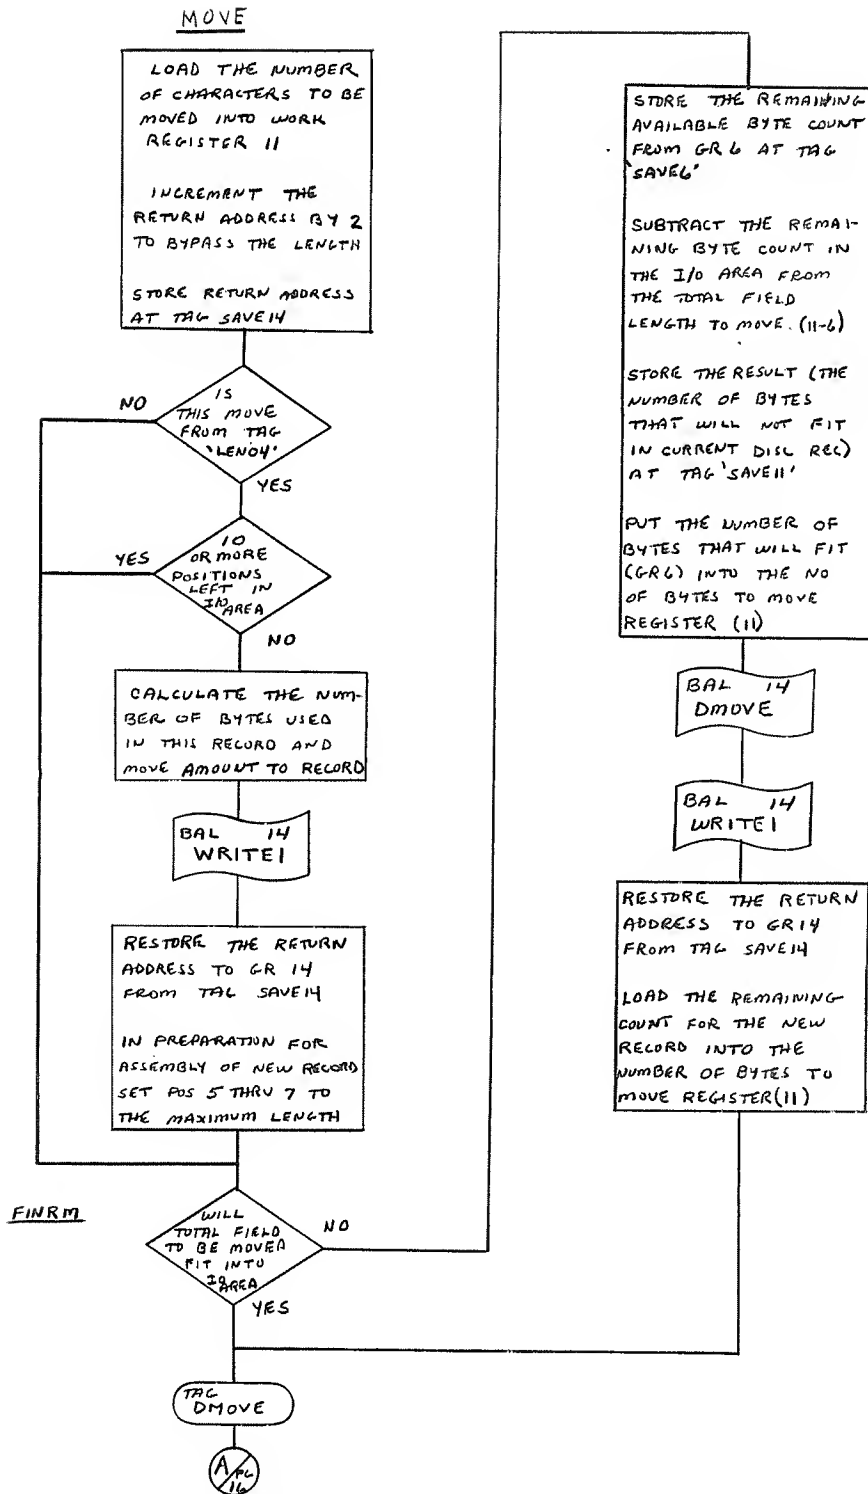 MOVE
LOAD THE NUMBER
OF CHARACTERS TO BE
MOVED INTO WORK
REGISTER 11
INCREMENT THE
RETURN ADDRESS BY 2
TO BYPASS THE LENGTH
STORE RETURN ADDRESS
AT TAG SAVE14
NO
IS
THIS MOVE
FROM TAG
'LEN04'
YES
YES
10
OR MORE
POSITIONS
LEFT IN
I/O AREA
NO
CALCULATE THE NUM-
BER OF BYTES USED
IN THIS RECORD AND
MOVE AMOUNT TO RECORD
BAL 14
WRITE1
RESTORE THE RETURN
ADDRESS TO GR 14
FROM TAG SAVE14
IN PREPARATION FOR
ASSEMBLY OF NEW RECORD
SET POS 5 THRU 7 TO
THE MAXIMUM LENGTH
FINRM
WILL
TOTAL FIELD
TO BE MOVED
FIT INTO
I/O AREA
NO
YES
TAG
DMOVE
A
PG
16
STORE THE REMAINING
AVAILABLE BYTE COUNT
FROM GR6 AT TAG
'SAVE6'
SUBTRACT THE REMAI-
NING BYTE COUNT IN
THE I/O AREA FROM
THE TOTAL FIELD
LENGTH TO MOVE. (11-6)
STORE THE RESULT (THE
NUMBER OF BYTES
THAT WILL NOT FIT
IN CURRENT DISC REC)
AT TAG 'SAVE11'
PUT THE NUMBER OF
BYTES THAT WILL FIT
(GR6) INTO THE NO
OF BYTES TO MOVE
REGISTER (11)
BAL 14
DMOVE
BAL 14
WRITE1
RESTORE THE RETURN
ADDRESS TO GR14
FROM TAG SAVE14
LOAD THE REMAINING
COUNT FOR THE NEW
RECORD INTO THE
NUMBER OF BYTES TO
MOVE REGISTER(11)